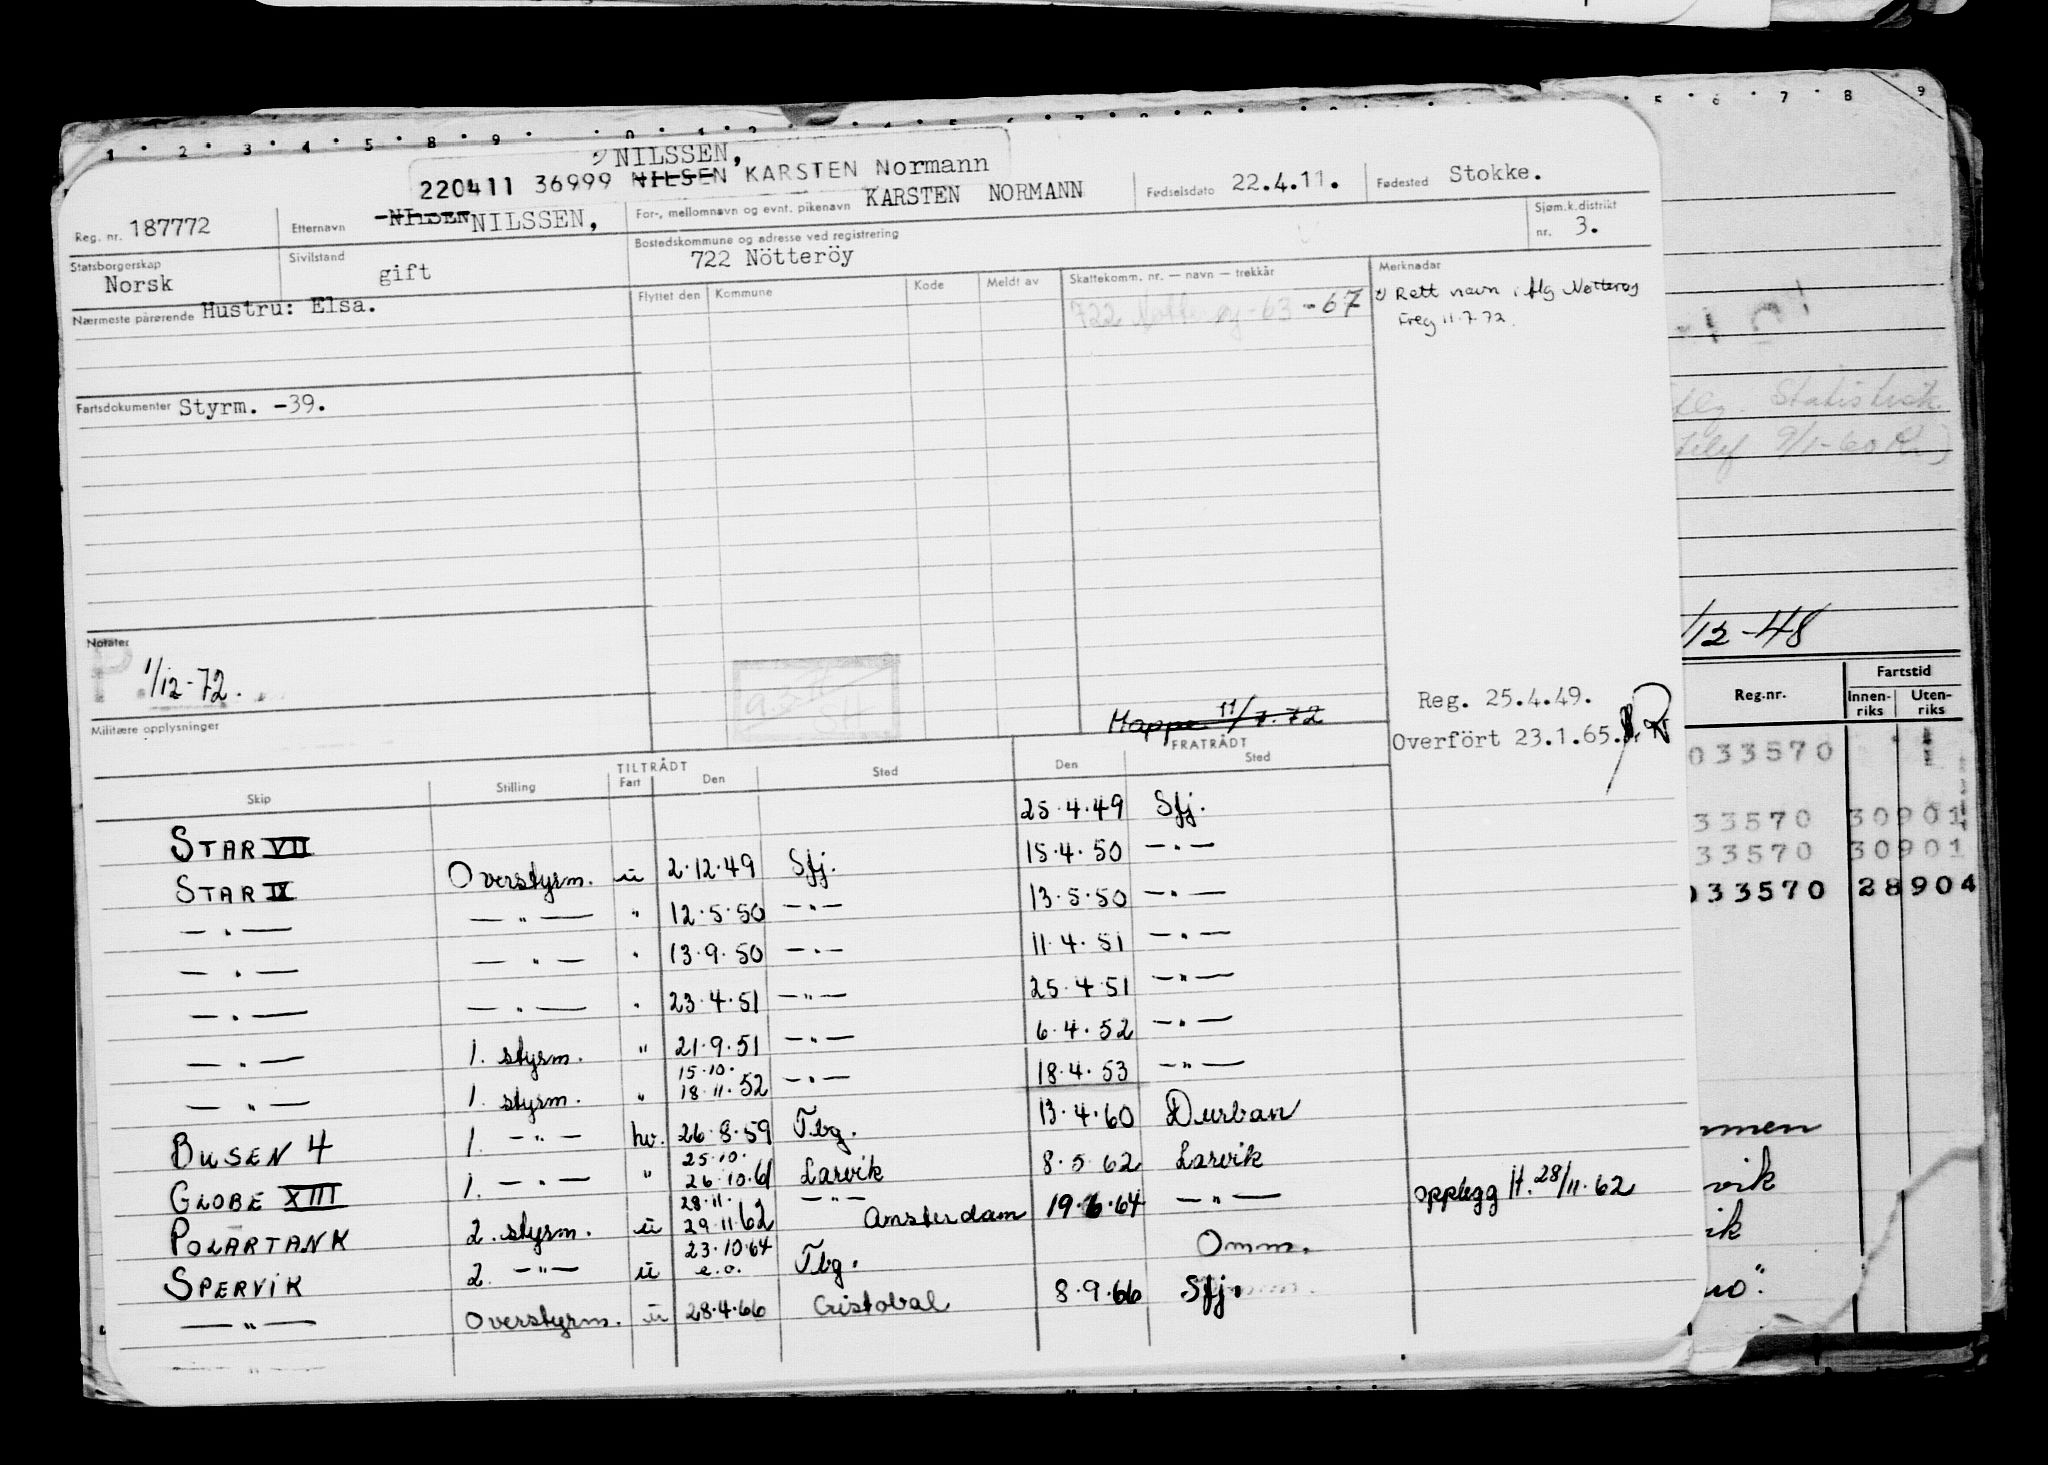 1 2 3 4 5 8 9 0
5 6 7 8 9
NILSSEN,
220411 36999 NILSEN KARSTEN Normann
Reg. nr. 187772 Etternavn NILSEN NILSSEN, For-, mellomnavn og evnt. pikenavn KARSTEN NORMANN Fødselsdato 22.4.11. Fødested Stokke.
Statsborgerskap Norsk Sivilstand gift Bostedskommune og adresse ved registrering 722 Nötteröy Sjøm.k.distrikt nr. 3.
Nærmeste pårørende Hustru: Elsa. Flyttet den Kommune Kode Meldt av Skattekomm. nr. — navn — trekkår Merknader
722 Nøtterøy -63 -67
Rett navn i flg Nøtterøy
Freg 11.7.72.
Fartsdokumenter Styrm. -39.
flg. Statistisk
9/1-60
Notater
P. 1/12-72.
/12-48
Militære opplysninger
Happe 11/7.72
Reg. 25.4.49.
Overfört 23.1.65.
Reg.nr. Fartstid
Innen-riks Uten-riks
TILTRÅDT FRATRÅDT
Skip Stilling Fart Den Sted Den Sted
STAR VII 25.4.49 Sfj.
STAR IX Overstyrm. u 2.12.49 Sfj. 15.4.50 — " —
— " — — " — " 12.5.50 — " — 13.5.50 — " —
— " — — " — " 13.9.50 — " — 11.4.51 — " —
— " — — " — " 23.4.51 — " — 25.4.51 — " —
— " — 1. styrm. " 21.9.51 — " — 6.4.52 — " —
— " — 1. styrm. " 15.10. 18.11.52 — " — 18.4.53 — " —
BUSEN 4 1. — " — hv. 26.8.59 Tbg. 13.4.60 Durban
GLOBE XIII 1. — " — " 25.10. 26.10.61 Larvik 8.5.62 Larvik
POLARTANK 2. styrm. u 28.11. 29.11.62 — " — Amsterdam 19.6.64 — " — opplegg H. 28/11.62
SPERVIK 2. — " — u 23.10.64 e.o. Tbg. Omm.
— " — Overstyrm. u 28.4.66 Cristobal 8.9.66 Sfj.
— " —
033570
33570 30901
33570 30901
033570 28904
mmen
vik
ik